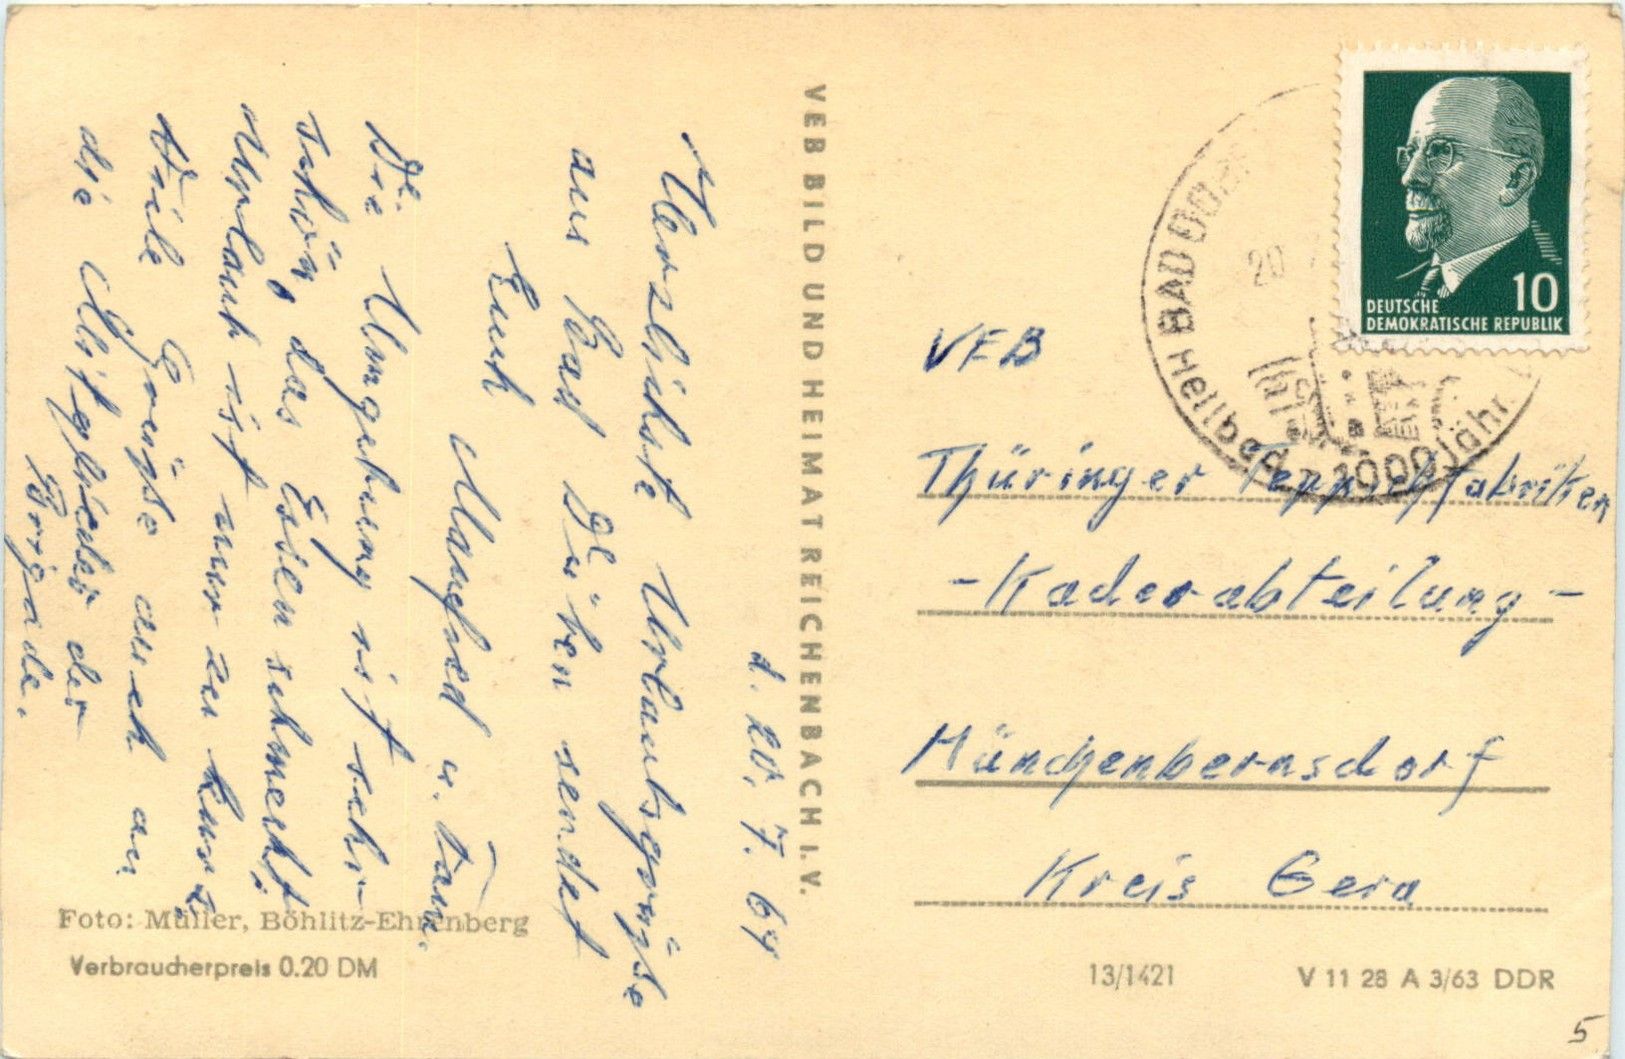 d. 20. 7. 64
Herzlichste Urlaubsgrüße
aus Bad Düben sendet
Euch
Manfred u. Fam.
Die Umgebung ist sehr
schön, das Essen schmeckt
Urlaub ist nur zu kurz.
Viele Grüße auch an
die Mitglieder der
Brigade.
Foto: Müller, Böhlitz-Ehrenberg
Verbraucherpreis 0.20 DM
VEB BILD UND HEIMAT REICHENBACH I. V.
BAD
20
Heilbad - 1000 jähr.
10
DEUTSCHE
DEMOKRATISCHE REPUBLIK
VEB
Thüringer Teppichfabriken
- Kaderabteilung -
Münchenbernsdorf
Kreis Gera
13/1421
V 11 28 A 3/63 DDR
5